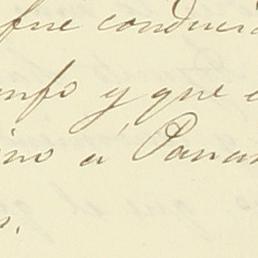 fue conduci
nfo y que
ino a Panam